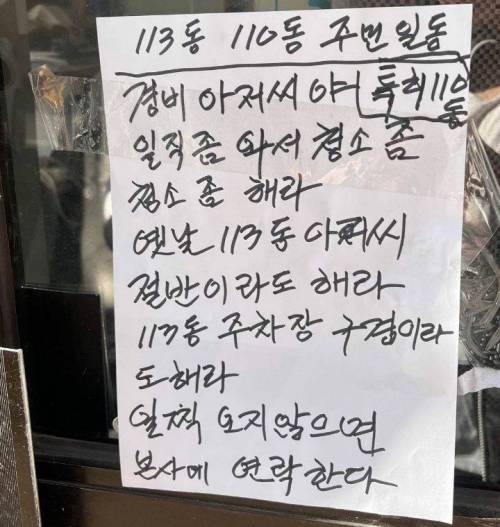 113동 110동 주민일동
경비 아저씨 야 특히 110동
일직좀 와서 청소 좀
청소 좀 해라
옛날 113동 아저씨
절반이라도 해라
113동 주차장 구경이라
도해라
일찍 오지않으면
본사에 연락한다